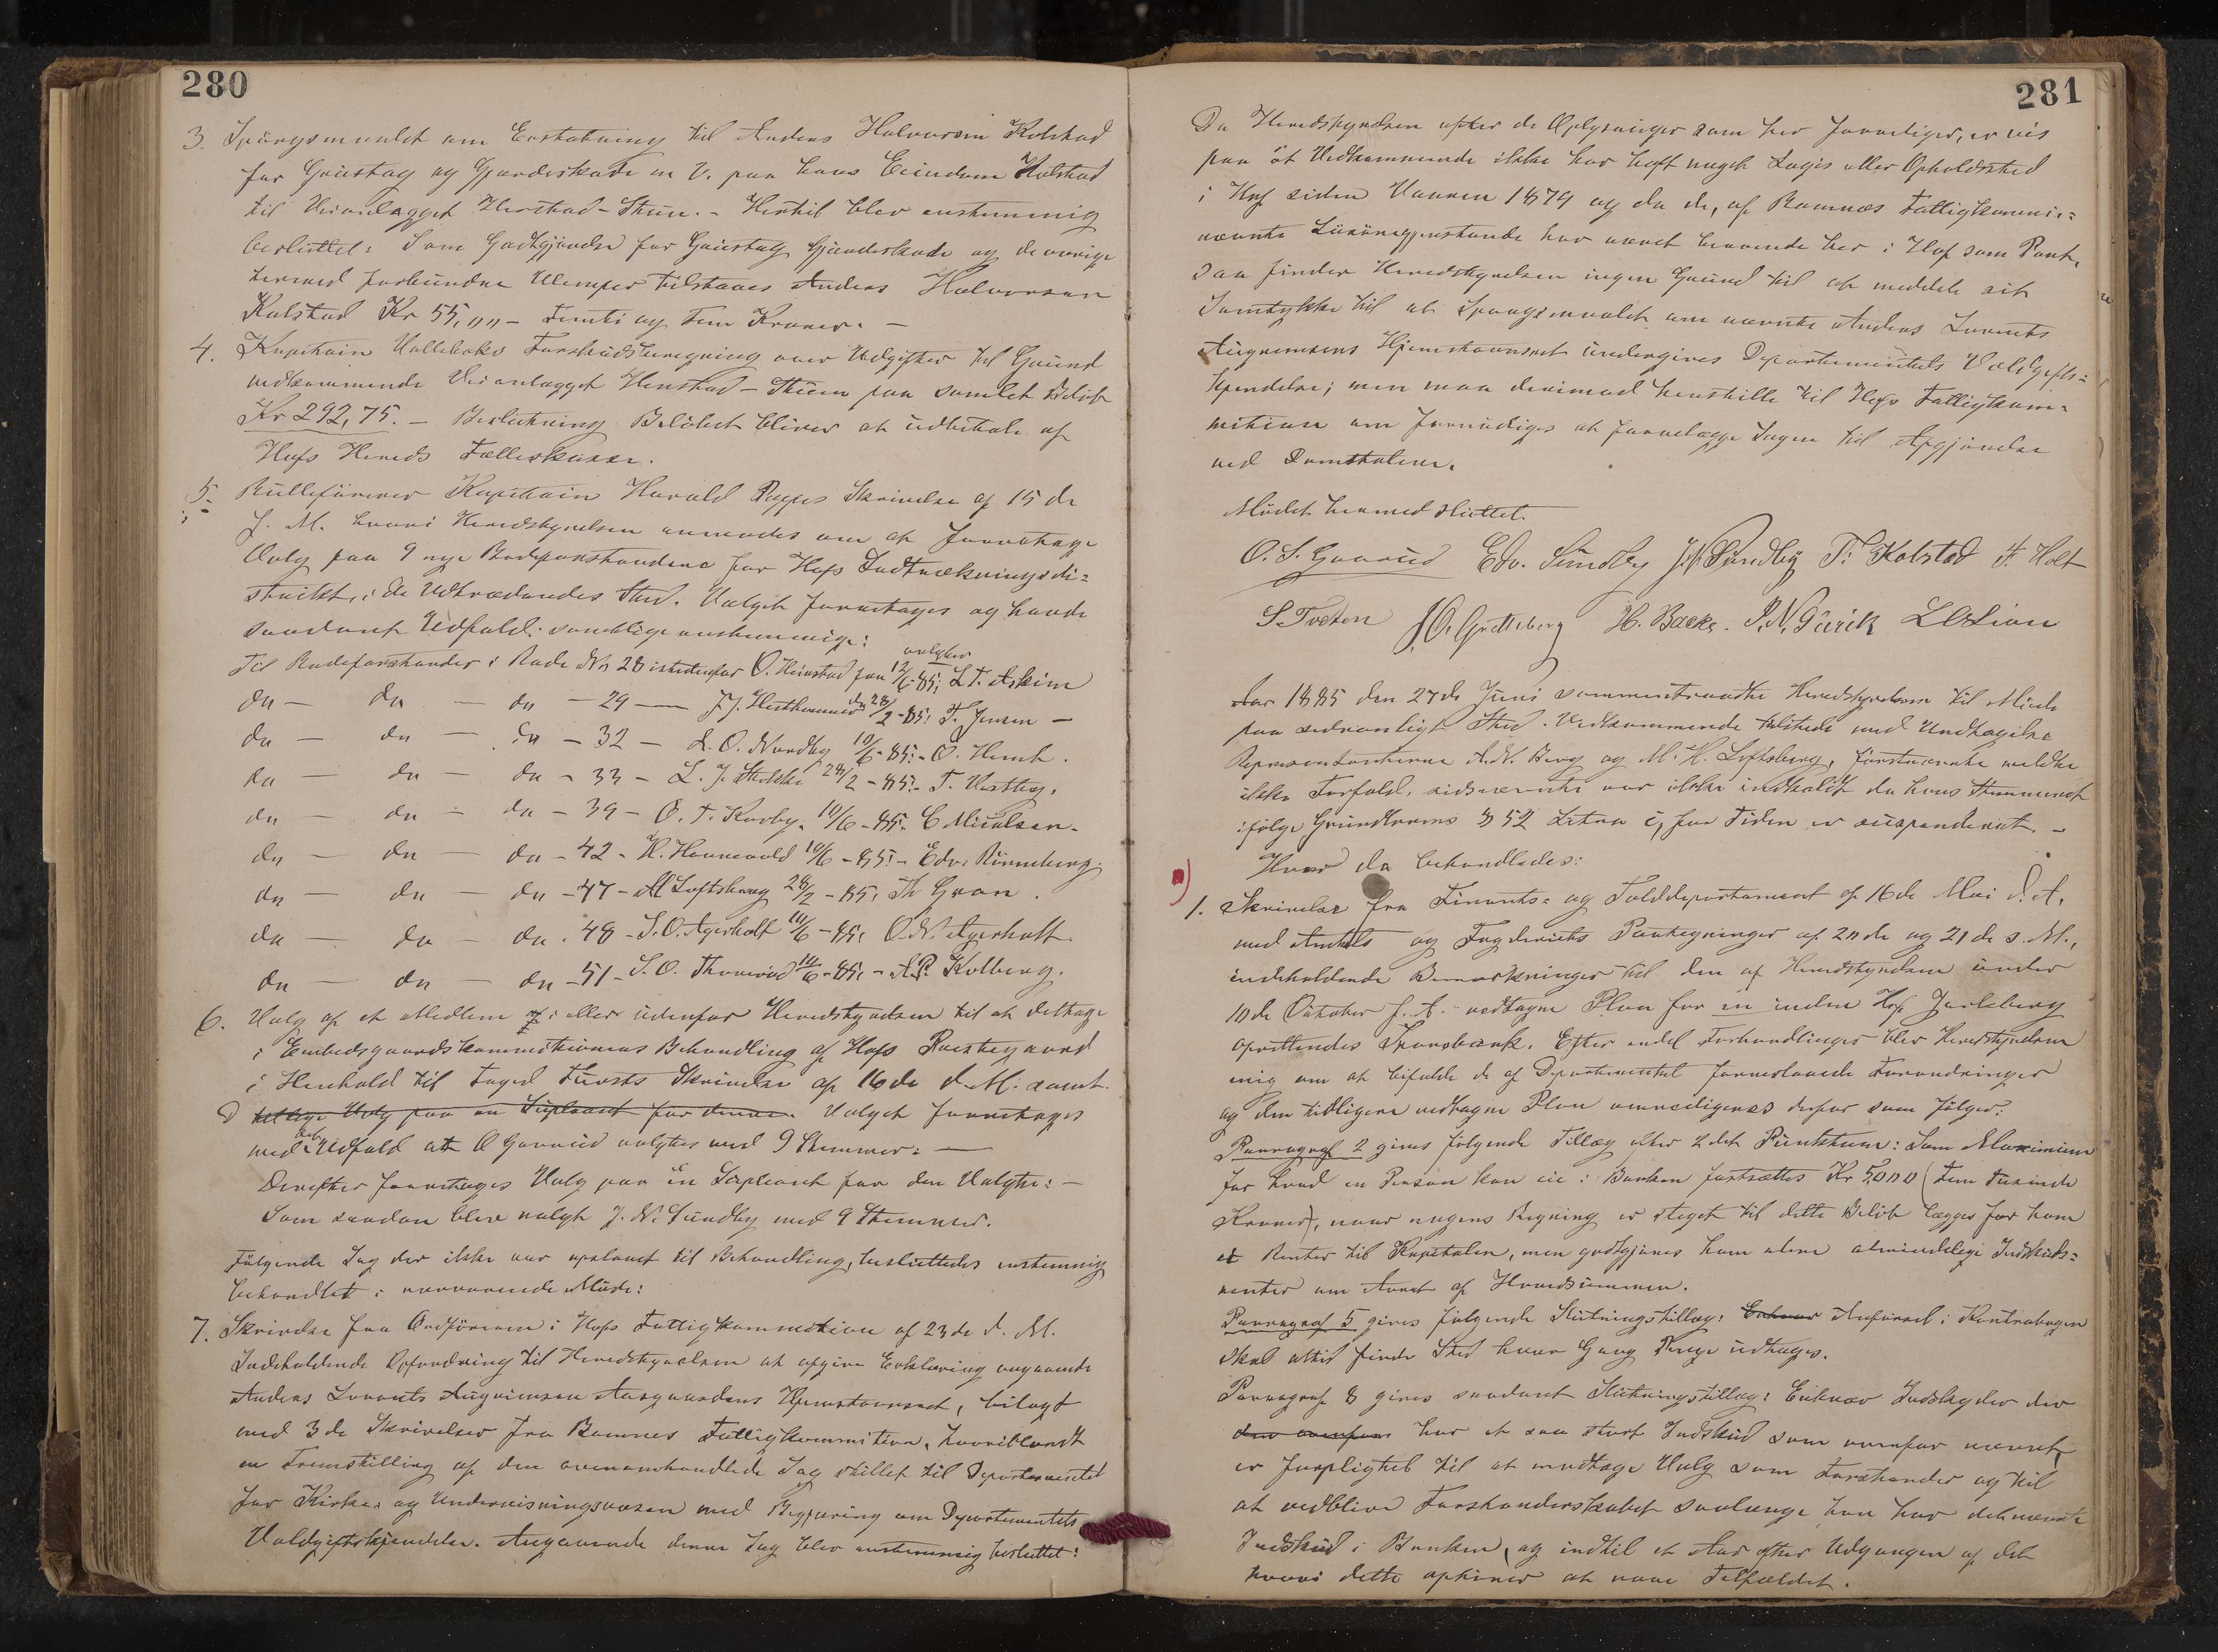 280
3. Spörgsmaalet om Erstatning til Anders Halvorsen Kolstad
for Gruustag og Gjærdeskade m. V. paa hans Eiendom Kolstad
til Veianlægget Henstad - Thuen. - Hertil blev enstemmig
besluttet: Som Godtgjørelse for Gruustag Gjærdeskade og de øvrige
hermed forbundne Ulemper tilstaaes Anders Halvorsen
Kolstad Kr 55,00 - Femti og Fem Kroner. -
4. Kapitain Forskudsberegning over Udgifter til Grund
vedkommende Veianlægget Henstad - Thuen paa samlet Beløb
Kr 292,75. - Beslutning Beløbet bliver at udbetale af
Hofs Hereds Fælleskasse.
5. Rullefører Kapitain Harald Skrivelse af 15 de
f. M. hvori Heredstyrelsen anmodes om at foretage
Valg paa 9 nye Rodeforstandere for Hofs Indtrækningsdi=
strikt, i de Udtrædendes Sted. Valget foretages og havde
saadant Udfald: samtlige enstemmige:
valgtes
Til Rodeforstander i Rode No 28 istedenfor O. Henstad fra 12/6-85; L. T. Askim
do — do — do — 29 — J. J. Hesthammer do 28/2-85; T. Jensen —
do — do — do — 32 — A. O. Nordby 10/6-85:- O. Hemb.
do — do — do - 33 - L. J. 28/2-85:- T. Vestby.
do — do — do - 39 - O. T. Korby. 10/6-85. C. Micalsen.
do — do — do - 42 - H. Hannevold 10/6-85:- Edv. Rönneberg.
do — do — do - 47 - M Loftsberg 28/2-85, Th Gran.
do — do — do. 48 - S. O. Agerholt 10/6-85, O. N. Agerholt.
do — do — do - 51 - S. O. Thorerød 10/6-85, - A. P. Kolberg.
6. Valg af et Medlem af i eller udenfor Heredstyrelsen til at deltage
i Embedsgaardskommissionens Behandling af Hofs Præstegaard
i Henhold til Foged Fursts Skrivelse af 16 de d. M. samt
tillige Valg paa en Supleant for denne. Valget foretages
med det Udfald at O Gaarud valgtes med 9 Stemmer: —
Derefter foretages Valg paa en Supleant for den Valgte: -
Som saadan blev valgt J. N. Sundby med 9 Stemmer.
Følgende Sag der ikke var opslaaet til Behandling, besluttedes enstemmig
behandlet i nærværende Møde:
7. Skrivelse fra Ordføreren i Hofs Fattigkommission af 23 de d. M.
Indeholdende Opfordring til Heredstyrelsen at afgive Erklæring angaaende
Anders Lorents Augrimsen Aasgaardens Hjemstavnsret, bilagt
med 3 de Skrivelser fra Ramnes Fattigkommission, hvoriblandt
en Fremstilling af den ovenomhandlede Sag stillet til Departementet
for Kirke- og Undervisningsvæsen med Begjæring om Departementets
Voldgiftskjendelse. Angaaende denne Sag blev enstemmig besluttet:
281
Da Heredstyrelsen efter de Oplysninger som her foreligger, er vis
paa at Vedkommende ikke har haft noget Logis eller Opholdssted
i Hof siden Vaaren 1879 og da de, af Ramnes Fattigkommis=
nævnte har været beroende her i Hof som Pant,
saa finder Heredstyrelsen ingen Grund til at meddele sit
Samtykke til at Spørgsmaalet om nævnte Anders Lorents
Augrimsens Hjemstavnsret undergives Departementets Voldgifts=
kjendelse; men maa derimod henstille til Hofs Fattigkom=
mission om fornødiges at forelægge Sagen til Afgjørelse
ved Domstolene.
Mødet hermed sluttet.
O. S. Gaarud Edv. Sundby J. N. Sundby T. Kolstad F. Holt
S Tveten J. O. Gretteberg H. Backe. P. N. L Olsen
Aar 1885 den 27 de Juni sammentraadte Heredstyrelsen til Møde
paa sedvanligt Sted. Vedkommende tilstede med Undtagelse
Repræsentanterne A. N. Berg og M. H. Loftsberg, førstnævnte meldte
ikke Forfald, sidsnævnte var ikke indkaldt da hans Stemmeret
ifølge Grundlovens § 52 Litra c, for Tiden er suspenderet. -
Hvor da behandledes:
1. Skrivelse fra Finants= og Tolddepartement af 16 de Mai d. A.
med Amtets og Fogderiets Paategninger af 20 de og 21 de s. M.,
indeholdende Bemærkninger til den af Heredstyrelsen under
10 de Oktober f. A. vedtagne Plan for en inden Hof Jarlsberg
oprettendes Sparebank. Efter endel Forhandlinger blev Heredstyrelsen
enig om at bifalde de af Departementet foreslaaede Forandringer
og den tidligere vedtagne Plan derfor som følger:
Paragraf 2 gives følgende Tillæg efter 2 det Punktum: Som Maximum
for hvad en Person kan eie i Banken fastsættes Kr 5,000 (Fem Tusinde
Kroner), naar nogens Regning er steget til dette Beløb lægges for ham
ei Renter til Kapitalen, men godtgjøres ham alene almindelige Indskuds=
renter om Aaret af Hovedsummen.
Paragraf 5 gives følgende Slutningstillæg: Enhver Anførsel i Kontrabogen
skal altid finde Sted hver Gang Penge udtages.
Paragraf 8 gives saadant Slutningstillæg: Enhver Indskyder der
der ovenfor har et saa stort Indskud som ovenfor nævnt,
er forpligtet til at modtage Valg som Forstander og til
at vedblive Forstanderskabet saalænge han har det nævnte
Indskud i Banken, og indtil et Aar efter Udgangen af det
hvori dette ophører at være Tilfældet.